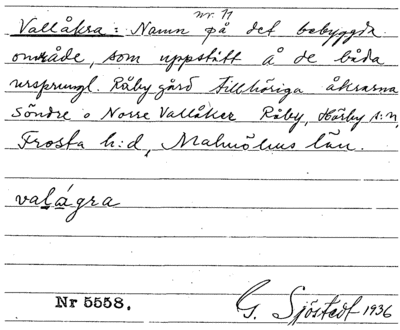 nr. 11
Vallåkra: Namn på det bebyggda
område, som uppstått å de båda
ursprungl. Råby gård tillhöriga åkrarna
Söndre o Norre Vallåker Råby, Hörby s:n,
Frosta h:d, Malmöhus län.
valágra
Nr 5558.
G. Sjöstedt 1936